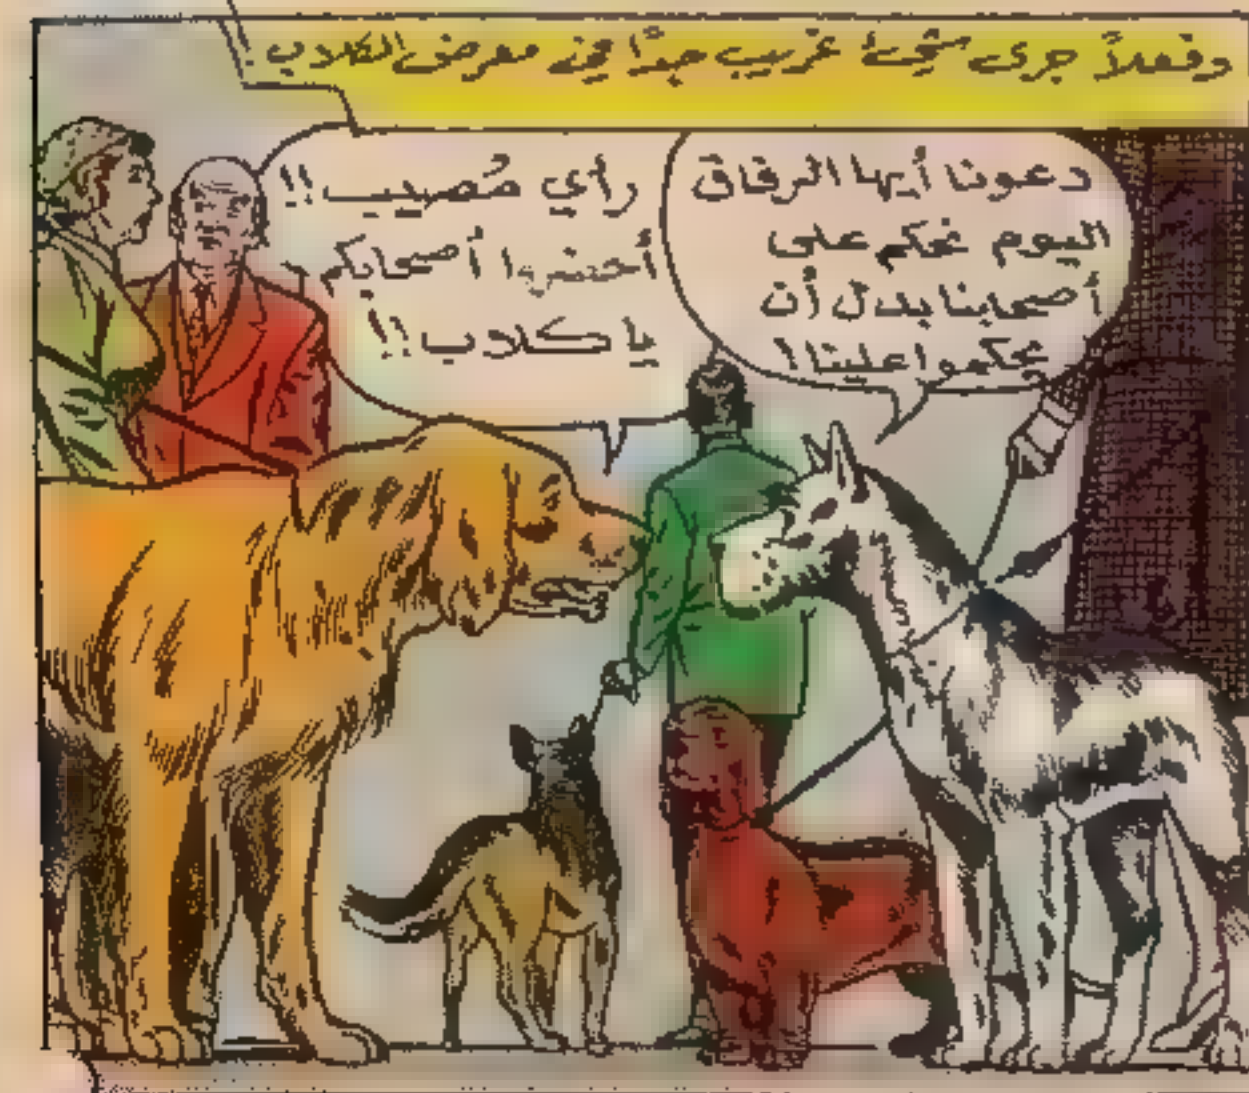 وفعلاً جرى شيء غريب جدًّا في معرض الكلاب!
دعونا أيها الرفاق
اليوم نحكم على
أصحابنا بدل أن
يحكموا علينا!
رأي مُصيب!!
أحضروا أصحابكم
يا كلاب!!